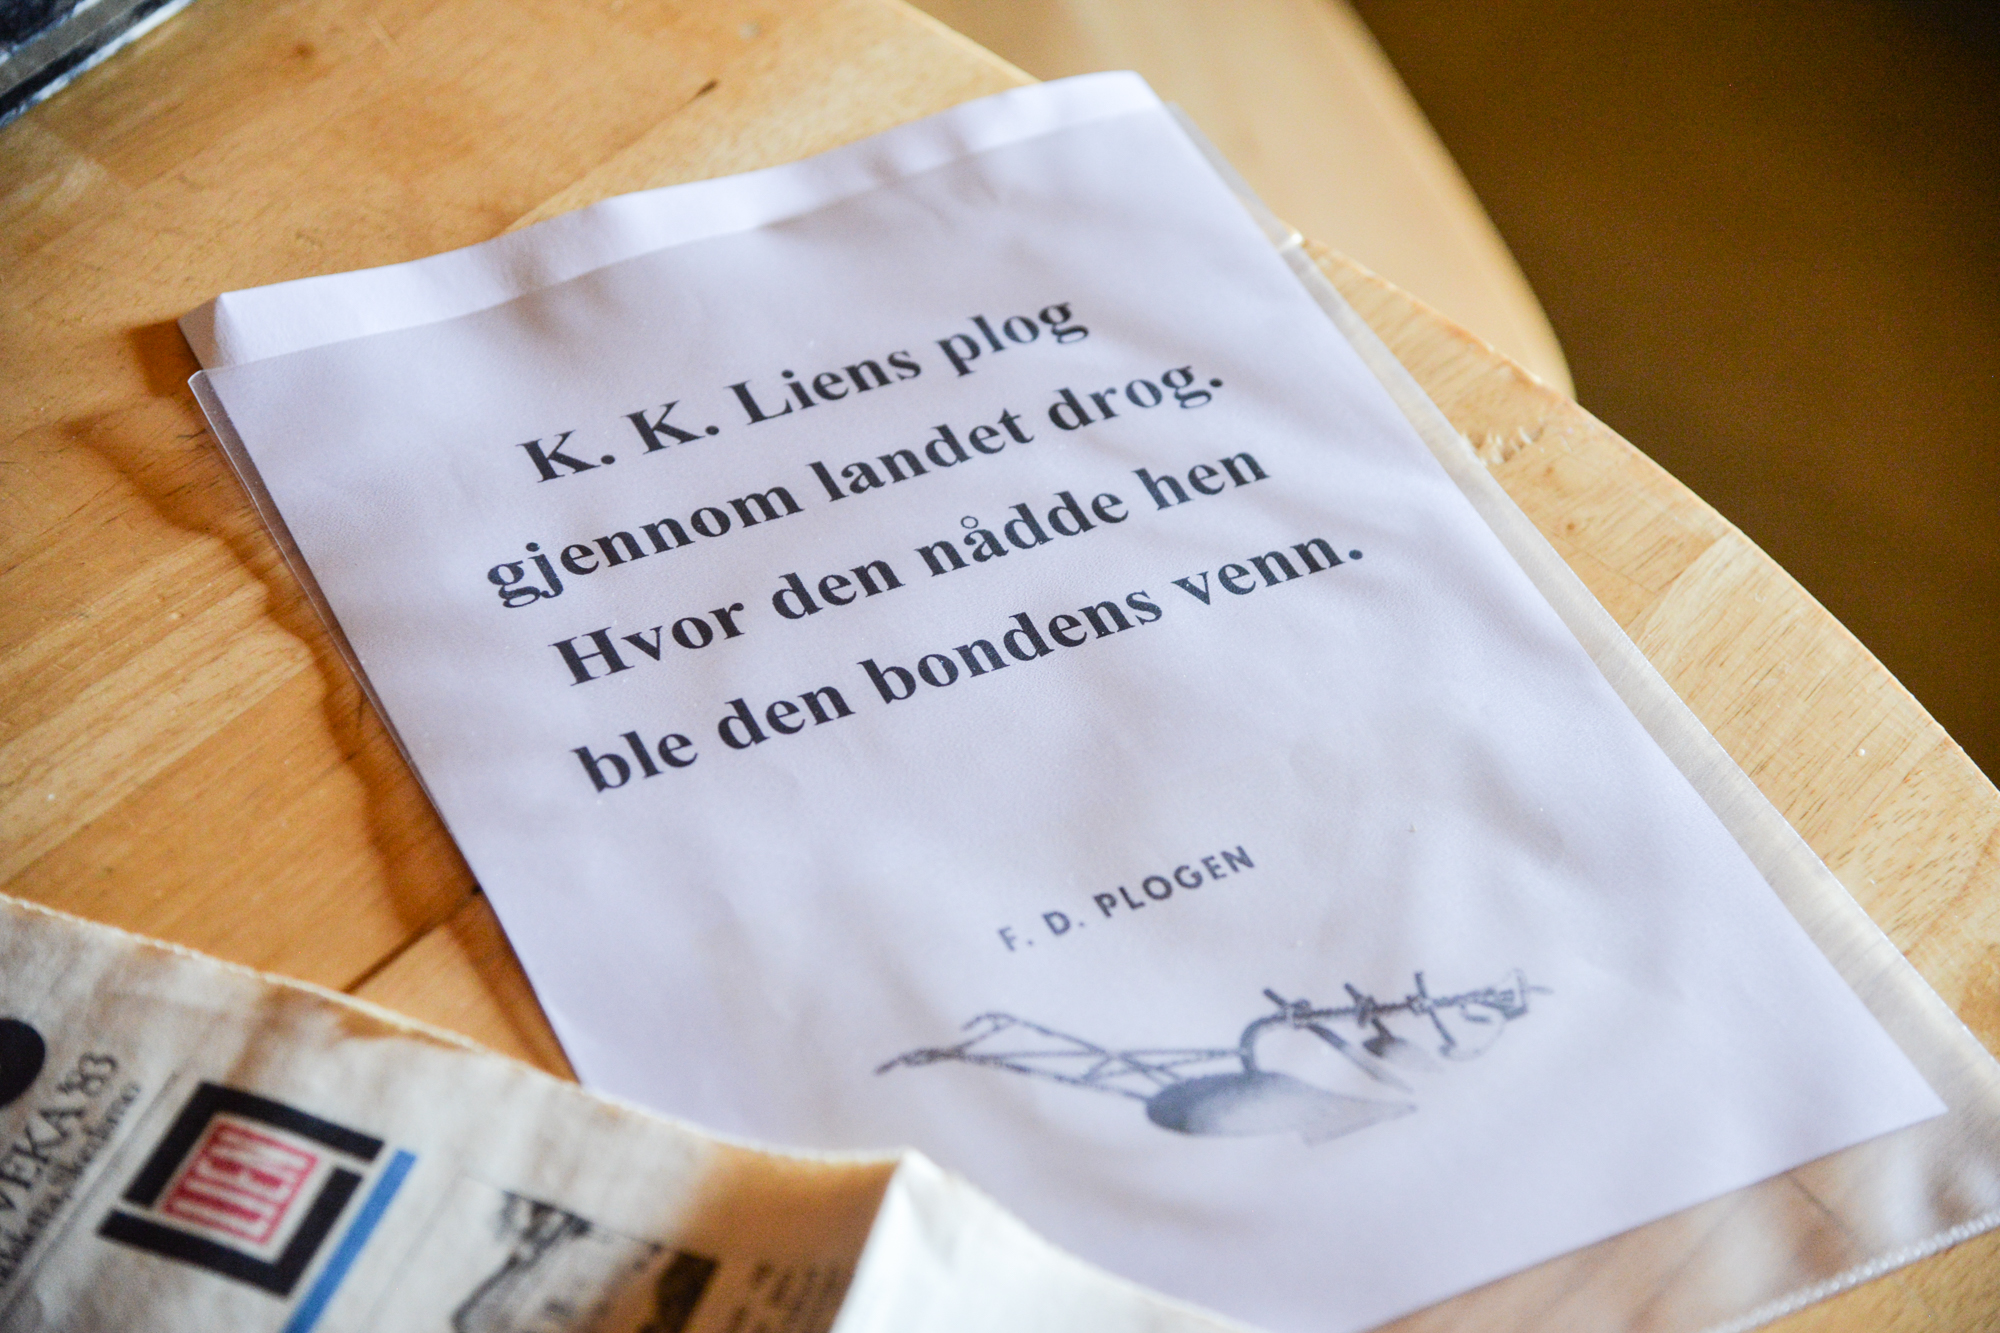 K. K. Liens plog
gjennom landet drog.
Hvor den nådde hen
ble den bondens venn.
F. D. PLOGEN
VEKA '83